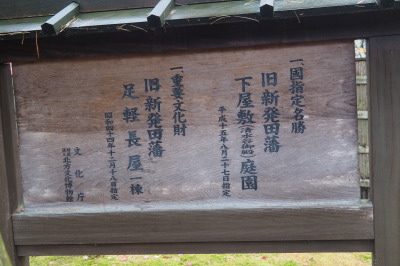 一、國指定名勝
旧新発田藩
下屋敷(清水谷御殿)庭園
平成十五年八月二十七日指定
一、重要文化財
旧新発田藩
足軽長屋 一棟
昭和四十四年十二月十八日指定
文化庁
北方文化博物館